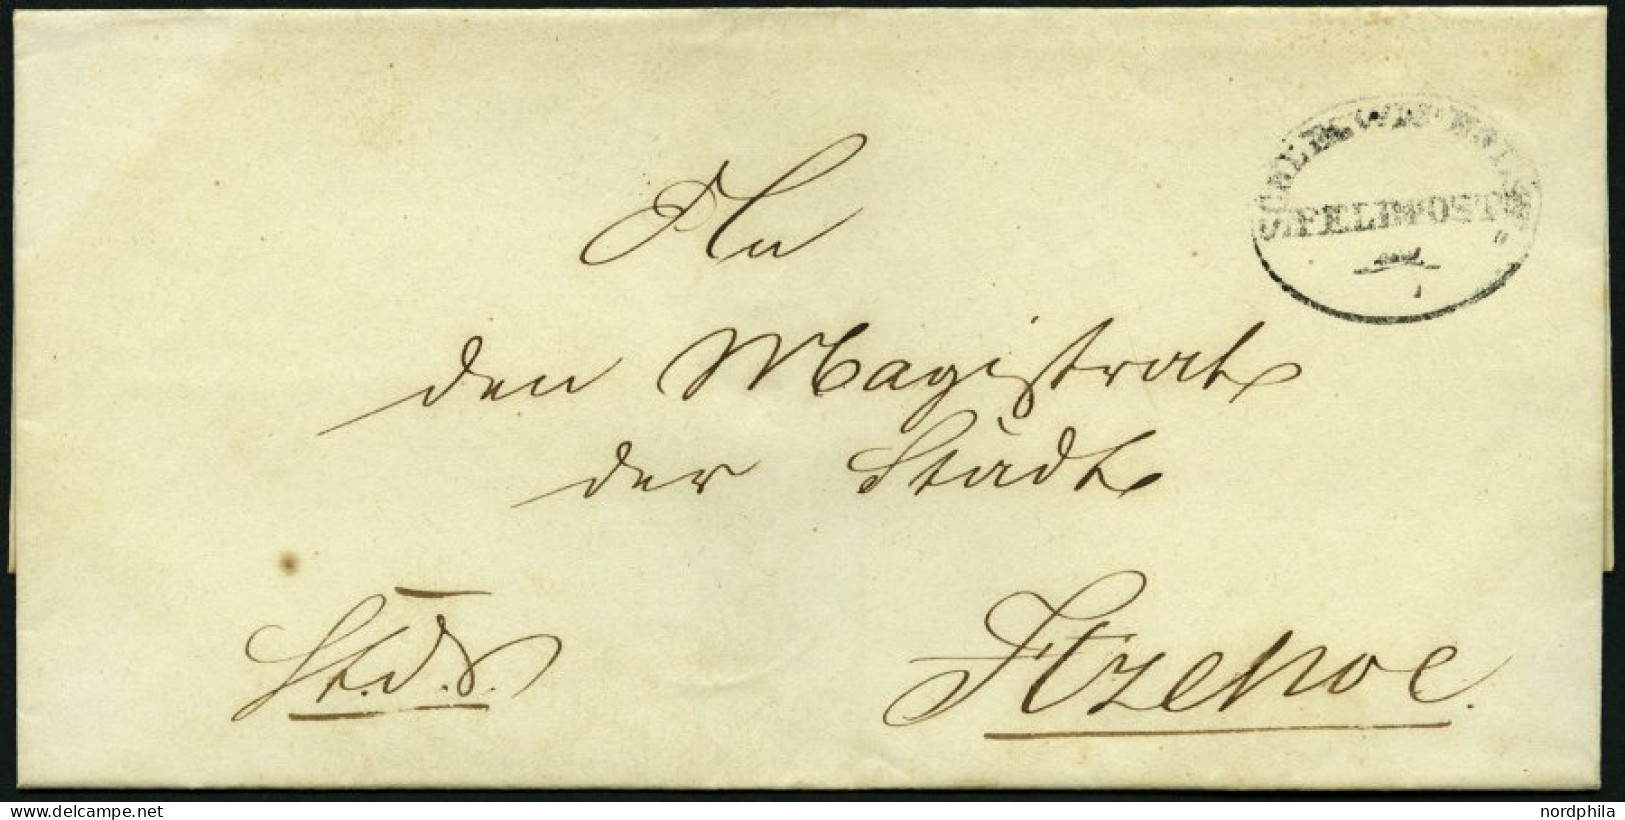 FELDPOST
An
den Magistrat
der Stadt
Itzehoe.
delcampe.net
nordphila